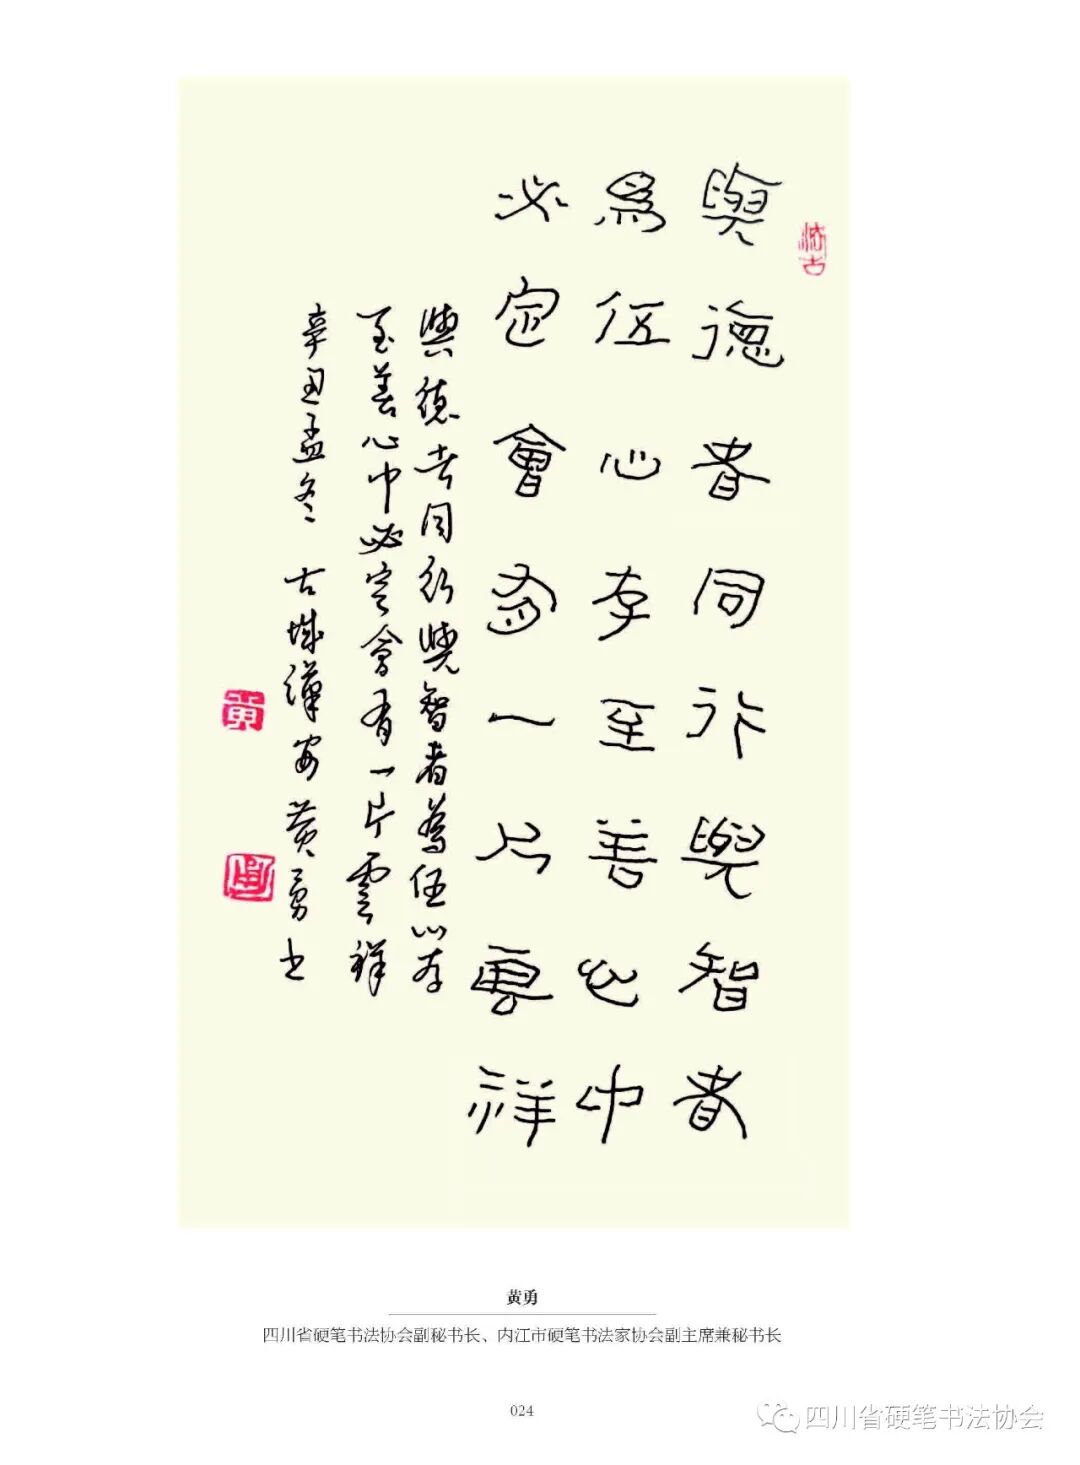 與德者同行與智者
為伍心存至善心中
必定會有一片雲祥
與德者同行與智者為伍心存
至善心中必定會有一片雲祥
辛丑孟冬 古城漢安黃勇书
黄勇
四川省硬笔书法协会副秘书长、内江市硬笔书法家协会副主席兼秘书长
024
四川省硬笔书法协会